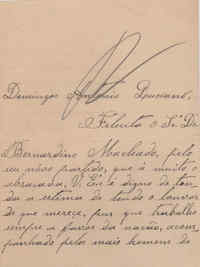 Domingos Antonio Lousano,
Felicita o Sr. Dr.
Bernardino Machado, pelo
seu novo partido, que é muito
V. Ex.ª é digno de
a estima de
que merece, por que trabalha
sempre a favor da nação, acom
panhado pelos mais homens de